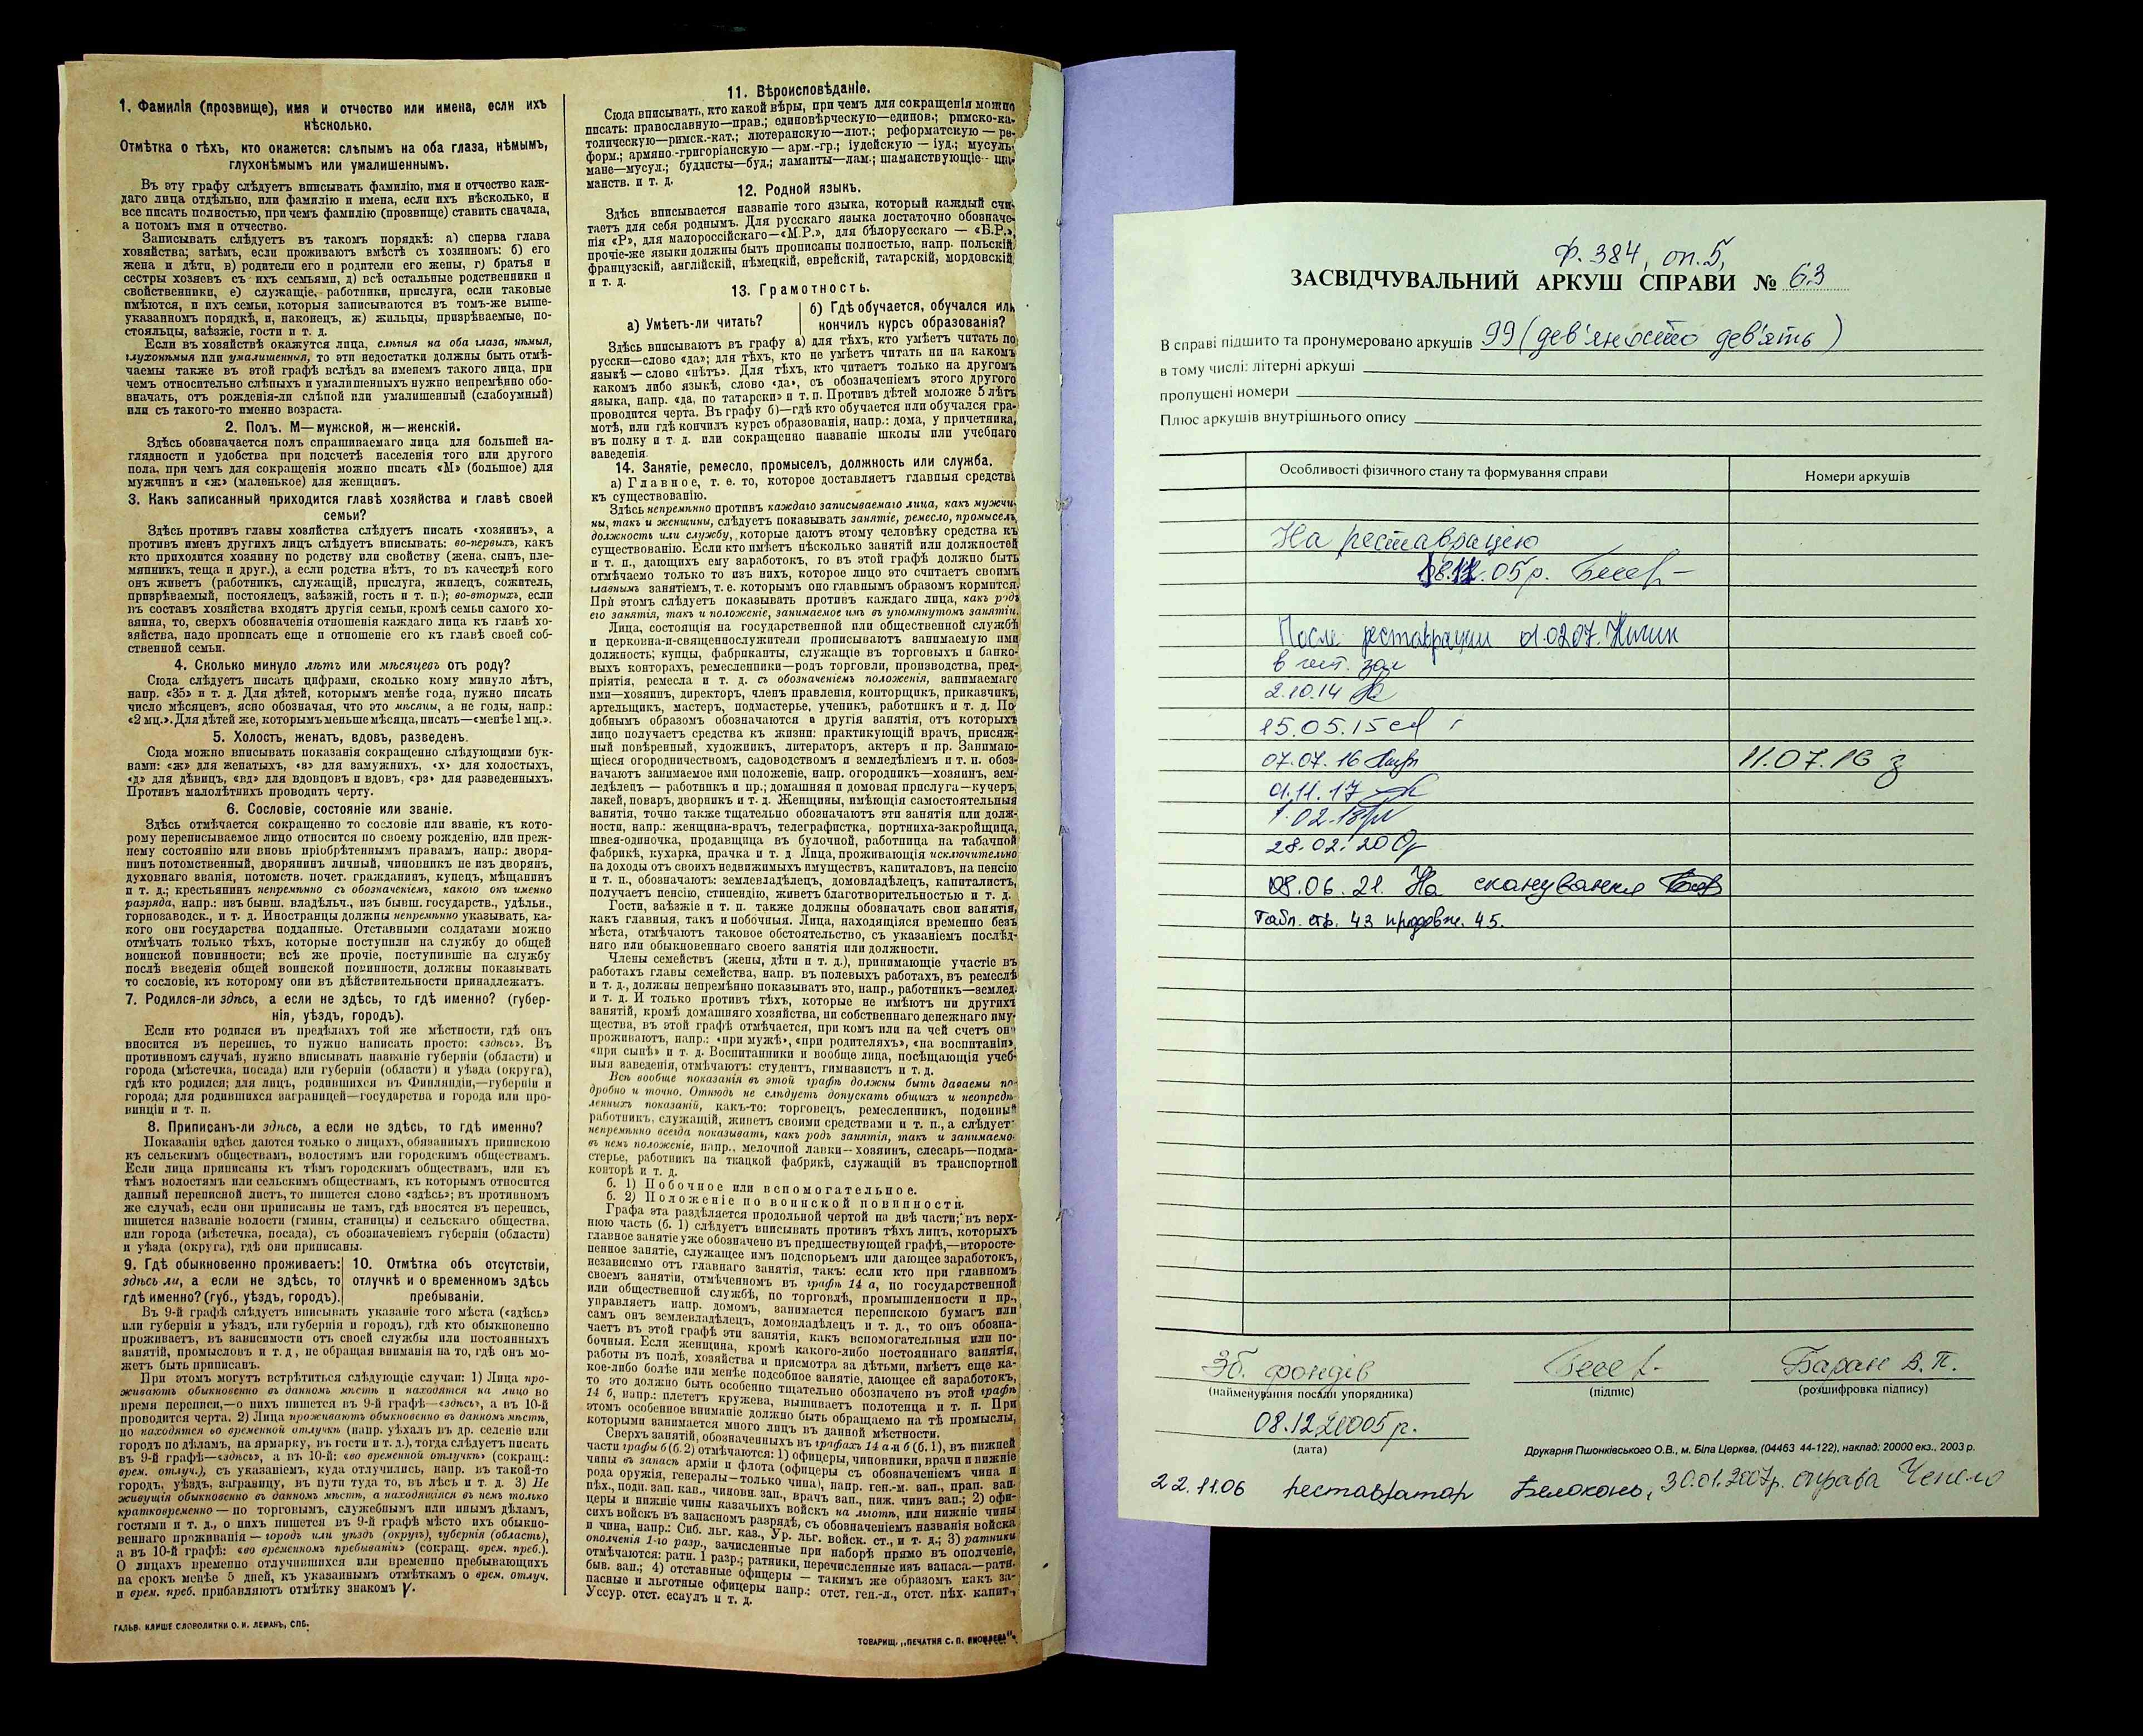 1. Фамилія (прозвище), имя и отчество или имена, если ихъ
нѣсколько.
Отмѣтка о тѣхъ, кто окажется: слѣпымъ на оба глаза, нѣмымъ,
глухонѣмымъ или умалишеннымъ.
Въ эту графу слѣдуетъ вписывать фамилію, имя и отчество каж-
даго лица отдѣльно, или фамилію и имена, если ихъ нѣсколько, и
все писать полностью, при чемъ фамилію (прозвище) ставить сначала,
а потомъ имя и отчество.
Записывать слѣдуетъ въ такомъ порядкѣ: а) сперва глава
хозяйства; затѣмъ, если проживаютъ вмѣстѣ съ хозяиномъ: б) его
жена и дѣти, в) родители его и родители его жены, г) братья и
сестры хозяевъ съ ихъ семьями, д) всѣ остальные родственники и
свойственники, е) служащіе, работники, прислуга, если таковые
имѣются, и ихъ семьи, которыя записываются въ томъ-же выше-
указанномъ порядкѣ, и, наконецъ, ж) жильцы, призрѣваемые, по-
стояльцы, заѣзжіе, гости и т. д.
Если въ хозяйствѣ окажутся лица, слѣпыя на оба глаза, нѣмыя,
глухонѣмыя или умалишенныя, то эти недостатки должны быть отмѣ-
чаемы также въ этой графѣ вслѣдъ за именемъ такого лица, при
чемъ относительно слѣпыхъ и умалишенныхъ нужно непремѣнно обо-
значать, отъ рожденія-ли слѣпой или умалишенный (слабоумный)
или съ такого-то именно возраста.
2. Полъ. М—мужской, ж—женскій.
Здѣсь обозначается полъ спрашиваемаго лица для большей на-
глядности и удобства при подсчетѣ населенія того или другого
пола, при чемъ для сокращенія можно писать «М» (большое) для
мужчинъ и «ж» (маленькое) для женщинъ.
3. Какъ записанный приходится главѣ хозяйства и главѣ своей
семьи?
Здѣсь противъ главы хозяйства слѣдуетъ писать «хозяинъ», а
противъ именъ другихъ лицъ слѣдуетъ вписывать: во-первыхъ, какъ
кто приходится хозяину по родству или свойству (жена, сынъ, пле-
мянникъ, теща и друг.), а если родства нѣтъ, то въ качествѣ кого
онъ живетъ (работникъ, служащій, прислуга, жилецъ, сожитель,
призрѣваемый, постоялецъ, заѣзжій, гость и т. п.); во-вторыхъ, если
въ составъ хозяйства входятъ другія семьи, кромѣ семьи самого хо-
зяина, то, сверхъ обозначенія отношенія каждаго лица къ главѣ хо-
зяйства, надо прописать еще и отношеніе его къ главѣ своей соб-
ственной семьи.
4. Сколько минуло лѣтъ или мѣсяцевъ отъ роду?
Сюда слѣдуетъ писать цифрами, сколько кому минуло лѣтъ,
напр. «35» и т. д. Для дѣтей, которымъ менѣе года, нужно писать
число мѣсяцевъ, ясно обозначая, что это мѣсяцы, а не годы, напр.:
«2 мц.». Для дѣтей же, которымъ меньше мѣсяца, писать—«менѣе 1 мц.».
5. Холостъ, женатъ, вдовъ, разведенъ.
Сюда можно вписывать показанія сокращенно слѣдующими бук-
вами: «ж» для женатыхъ, «з» для замужнихъ, «х» для холостыхъ,
«д» для дѣвицъ, «вд» для вдовцовъ и вдовъ, «рз» для разведенныхъ.
Противъ малолѣтнихъ проводить черту.
6. Сословіе, состояніе или званіе.
Здѣсь отмѣчается сокращенно то сословіе или званіе, къ кото-
рому переписываемое лицо относится по своему рожденію, или преж-
нему состоянію или вновь пріобрѣтеннымъ правамъ, напр.: дворя-
нинъ потомственный, дворянинъ личный, чиновникъ не изъ дворянъ,
духовнаго званія, потомств. почет. гражданинъ, купецъ, мѣщанинъ
и т. д.; крестьянинъ непремѣнно съ обозначеніемъ, какого онъ именно
разряда, напр.: изъ бывш. владѣльч., изъ бывш. государств., удѣльн.,
горнозаводск., и т. д. Иностранцы должны непремѣнно указывать, ка-
кого они государства подданные. Отставными солдатами можно
отмѣчать только тѣхъ, которые поступили на службу до общей
воинской повинности; всѣ же прочіе, поступившіе на службу
послѣ введенія общей воинской повинности, должны показывать
то сословіе, къ которому они въ дѣйствительности принадлежатъ.
7. Родился-ли здѣсь, а если не здѣсь, то гдѣ именно? (губер-
нія, уѣздъ, городъ).
Если кто родился въ предѣлахъ той же мѣстности, гдѣ онъ
вносится въ перепись, то нужно написать просто: «здѣсь». Въ
противномъ случаѣ, нужно вписывать названіе губерніи (области) и
города (мѣстечка, посада) или губерніи (области) и уѣзда (округа),
гдѣ кто родился; для лицъ, родившихся въ Финляндіи,—губерніи и
города; для родившихся заграницей—государства и города или про-
винціи и т. п.
8. Приписанъ-ли здѣсь, а если не здѣсь, то гдѣ именно?
Показанія здѣсь даются только о лицахъ, обязанныхъ припискою
къ сельскимъ обществамъ, волостямъ или городскимъ обществамъ.
Если лица приписаны къ тѣмъ городскимъ обществамъ, или къ
тѣмъ волостямъ или сельскимъ обществамъ, къ которымъ относится
данный переписной листъ, то пишется слово «здѣсь»; въ противномъ
же случаѣ, если они приписаны не тамъ, гдѣ вносятся въ перепись,
пишется названіе волости (гмины, станицы) и сельскаго общества,
или города (мѣстечка, посада), съ обозначеніемъ губерніи (области)
и уѣзда (округа), гдѣ они приписаны.
9. Гдѣ обыкновенно проживаетъ:
здѣсь ли, а если не здѣсь, то
гдѣ именно? (губ., уѣздъ, городъ).
10. Отмѣтка объ отсутствіи,
отлучкѣ и о временномъ здѣсь
пребываніи.
Въ 9-й графѣ слѣдуетъ вписывать указаніе того мѣста («здѣсь»
или губернія и уѣздъ, или губернія и городъ), гдѣ кто обыкновенно
проживаетъ, въ зависимости отъ своей службы или постоянныхъ
занятій, промысловъ и т. д., не обращая вниманія на то, гдѣ онъ мо-
жетъ быть приписанъ.
При этомъ могутъ встрѣтиться слѣдующіе случаи: 1) Лица про-
живаютъ обыкновенно въ данномъ мѣстѣ и находятся на лицо во
время переписи,—о нихъ пишется въ 9-й графѣ—«здѣсь», а въ 10-й
проводится черта. 2) Лица проживаютъ обыкновенно въ данномъ мѣстѣ,
но находятся во временной отлучкѣ (напр. уѣхалъ въ др. селеніе или
городъ по дѣламъ, на ярмарку, въ гости и т. д.), тогда слѣдуетъ писать
въ 9-й графѣ—«здѣсь», а въ 10-й: «во временной отлучкѣ» (сокращ.:
врем. отлуч.), съ указаніемъ, куда отлучились, напр. въ такой-то
городъ, уѣздъ, заграницу, въ пути туда то, въ лѣсъ и т. д. 3) Не
живущія обыкновенно въ данномъ мѣстѣ, а находящіяся въ немъ только
кратковременно — по торговымъ, служебнымъ или инымъ дѣламъ,
гостями и т. д., о нихъ пишется въ 9-й графѣ мѣсто ихъ обыкно-
веннаго проживанія — городъ или уѣздъ (округъ), губернія (область),
а въ 10-й графѣ: «во временномъ пребываніи» (сокращ. врем. преб.).
О лицахъ временно отлучившихся или временно пребывающихъ
на срокъ менѣе 5 дней, къ указаннымъ отмѣткамъ о врем. отлуч.
и врем. преб. прибавляютъ отмѣтку знакомъ V.
ГАЛЬВ. КЛИШЕ СЛОВОЛИТНИ О. И. ЛЕМАНЪ, СПБ.
11. Вѣроисповѣданіе.
Сюда вписывать, кто какой вѣры, при чемъ для сокращенія можно
писать: православную—прав.; единовѣрческую—единов.; римско-ка-
толическую—римск.-кат.; лютеранскую—лют.; реформатскую — ре-
форм.; армяно-григоріанскую — арм.-гр.; іудейскую — іуд.; мусуль-
мане—мусул.; буддисты—буд.; ламаиты—лам.; шаманствующіе - ша-
манств. и т. д.
12. Родной языкъ.
Здѣсь вписывается названіе того языка, который каждый счи-
таетъ для себя роднымъ. Для русскаго языка достаточно обозначе-
нія «Р», для малороссійскаго—«М.Р.», для бѣлорусскаго — «Б.Р.»,
прочіе-же языки должны быть прописаны полностью, напр. польскій,
французскій, англійскій, нѣмецкій, еврейскій, татарскій, мордовскій
и т. д.
13. Грамотность.
а) Умѣетъ-ли читать?
б) Гдѣ обучается, обучался или
кончилъ курсъ образованія?
Здѣсь вписываютъ въ графу а) для тѣхъ, кто умѣетъ читать по
русски—слово «да»; для тѣхъ, кто не умѣетъ читать ни на какомъ
языкѣ — слово «нѣтъ». Для тѣхъ, кто читаетъ только на другомъ
какомъ либо языкѣ, слово «да», съ обозначеніемъ этого другого
языка, напр. «да, по татарски» и т. п. Противъ дѣтей моложе 5 лѣтъ
проводится черта. Въ графу б)—гдѣ кто обучается или обучался гра-
мотѣ, или гдѣ кончилъ курсъ образованія, напр.: дома, у причетника,
въ полку и т. д. или сокращенно названіе школы или учебнаго
заведенія.
14. Занятіе, ремесло, промыселъ, должность или служба.
а) Главное, т. е. то, которое доставляетъ главныя средства
къ существованію.
Здѣсь непремѣнно противъ каждаго записываемаго лица, какъ мужчи-
ны, такъ и женщины, слѣдуетъ показывать занятіе, ремесло, промыселъ,
должность или службу, которые даютъ этому человѣку средства къ
существованію. Если кто имѣетъ нѣсколько занятій или должностей
и т. п., дающихъ ему заработокъ, то въ этой графѣ должно быть
отмѣчаемо только то изъ нихъ, которое лицо это считаетъ своимъ
главнымъ занятіемъ, т. е. которымъ оно главнымъ образомъ кормится.
При этомъ слѣдуетъ показывать противъ каждаго лица, какъ родъ
его занятія, такъ и положеніе, занимаемое имъ въ упомянутомъ занятіи.
Лица, состоящія на государственной или общественной службѣ
и церковна-и-священнослужители прописываютъ занимаемую ими
должность; купцы, фабриканты, служащіе въ торговыхъ и банко-
выхъ конторахъ, ремесленники—родъ торговли, производства, пред-
пріятія, ремесла и т. д. съ обозначеніемъ положенія, занимаемаго
ими—хозяинъ, директоръ, членъ правленія, конторщикъ, приказчикъ,
артельщикъ, мастеръ, подмастерье, ученикъ, работникъ и т. д. По-
добнымъ образомъ обозначаются и другія занятія, отъ которыхъ
лицо получаетъ средства къ жизни: практикующій врачъ, присяж-
ный повѣренный, художникъ, литераторъ, актеръ и пр. Занимаю-
щіеся огородничествомъ, садоводствомъ и земледѣліемъ и т. п. обоз-
начаютъ занимаемое ими положеніе, напр. огородникъ—хозяинъ, зем-
ледѣлецъ — работникъ и пр.; домашняя и домовая прислуга—кучеръ,
лакей, поваръ, дворникъ и т. д. Женщины, имѣющія самостоятельныя
занятія, точно также тщательно обозначаютъ эти занятія или долж-
ности, напр.: женщина-врачъ, телеграфистка, портниха-закройщица,
швея-одиночка, продавщица въ булочной, работница на табачной
фабрикѣ, кухарка, прачка и т. д. Лица, проживающія исключительно
на доходы отъ своихъ недвижимыхъ имуществъ, капиталовъ, на пенсію
и т. п., обозначаютъ: землевладѣлецъ, домовладѣлецъ, капиталистъ,
получаетъ пенсію, стипендію, живетъ благотворительностью и т. д.
Гости, заѣзжіе и т. п. также должны обозначать свои занятія,
какъ главныя, такъ и побочныя. Лица, находящіяся временно безъ
мѣста, отмѣчаютъ таковое обстоятельство, съ указаніемъ послѣд-
няго или обыкновеннаго своего занятія или должности.
Члены семействъ (жены, дѣти и т. д.), принимающіе участіе въ
работахъ главы семейства, напр. въ полевыхъ работахъ, въ ремеслѣ
и т. д., должны непремѣнно показывать это, напр., работникъ—землед.
и т. д. И только противъ тѣхъ, которые не имѣютъ ни другихъ
занятій, кромѣ домашняго хозяйства, ни собственнаго денежнаго иму-
щества, въ этой графѣ отмѣчается, при комъ или на чей счетъ они
проживаютъ, напр.: «при мужѣ», «при родителяхъ», «на воспитаніи»,
«при сынѣ» и т. д. Воспитанники и вообще лица, посѣщающія учеб-
ныя заведенія, отмѣчаютъ: студентъ, гимназистъ и т. д.
Всѣ вообще показанія въ этой графѣ должны быть даваемы по-
дробно и точно. Отнюдь не слѣдуетъ допускать общихъ и неопредѣ-
ленныхъ показаній, какъ-то: торговецъ, ремесленникъ, поденный
работникъ, служащій, живетъ своими средствами и т. п., а слѣдуетъ
непремѣнно всегда показывать, какъ родъ занятія, такъ и занимаемое
въ немъ положеніе, напр., мелочной лавки—хозяинъ, слесарь—подма-
стерье, работникъ на ткацкой фабрикѣ, служащій въ транспортной
конторѣ и т. д.
б. 1) Побочное или вспомогательное.
б. 2) Положеніе по воинской повинности.
Графа эта раздѣляется продольной чертой на двѣ части; въ верх-
нюю часть (б. 1) слѣдуетъ вписывать противъ тѣхъ лицъ, которыхъ
главное занятіе уже обозначено въ предшествующей графѣ,—второсте-
пенное занятіе, служащее имъ подспорьемъ или дающее заработокъ,
независимо отъ главнаго занятія, такъ: если кто при главномъ
своемъ занятіи, отмѣченномъ въ графѣ 14 а, по государственной
или общественной службѣ, по торговлѣ, промышленности и пр.,
управляетъ напр. домомъ, занимается перепискою бумагъ или
самъ онъ землевладѣлецъ, домовладѣлецъ и т. д., то онъ обозна-
чаетъ въ этой графѣ эти занятія, какъ вспомогательныя или по-
бочныя. Если женщина, кромѣ какого-либо постояннаго занятія,
работы въ полѣ, хозяйства и присмотра за дѣтьми, имѣетъ еще ка-
кое-либо болѣе или менѣе подсобное занятіе, дающее ей заработокъ,
то это должно быть особенно тщательно обозначено въ этой графѣ
14 б, напр.: плететъ кружева, вышиваетъ полотенца и т. п. При
этомъ особенное вниманіе должно быть обращаемо на тѣ промыслы,
которыми занимается много лицъ въ данной мѣстности.
Сверхъ занятій, обозначенныхъ въ графахъ 14 а и б (б. 1), въ нижней
части графы б (б. 2) отмѣчаются: 1) офицеры, чиновники, врачи и нижніе
чины въ запасѣ арміи и флота (офицеры съ обозначеніемъ чина и
рода оружія, генералы—только чина), напр. ген.-м. зап., прап. зап.
пѣх., подп. зап. кав., чиновн. зап., врачъ зап., ниж. чинъ зап.; 2) офи-
церы и нижніе чины казачьихъ войскъ на льготѣ, или нижніе чины
сихъ войскъ въ запасномъ разрядѣ, съ обозначеніемъ названія войска
и чина, напр.: Сиб. льг. каз., Ур. льг. войск. ст., и т. д.; 3) ратники
ополченія 1-го разр., зачисленные при наборѣ прямо въ ополченіе,
отмѣчаются: ратн. 1 разр.; ратники, перечисленные изъ запаса—ратн.
быв. зап.; 4) отставные офицеры — такимъ же образомъ какъ за-
пасные и льготные офицеры напр.: отст. ген.-л., отст. пѣх. капит.,
Уссур. отст. есаулъ и т. д.
ТОВАРИЩ. „ПЕЧАТНЯ С. П. ЯКОВЛЕВА".
Ф. 384, оп. 5,
ЗАСВІДЧУВАЛЬНИЙ АРКУШ СПРАВИ № 63
В справі підшито та пронумеровано аркушів 99 (дев'яносто дев'ять)
в тому числі: літерні аркуші
пропущені номери
Плюс аркушів внутрішнього опису
Особливості фізичного стану та формування справи
Номери аркушів
На реставрацію
05р.
После реставрации 01.0207.
в чит. зал
2.10.14
15.05.15
07.07.16
11.07.16
01.11.17
28.02.20
08.06.21. На сканування
Табл. стр. 43 продовж. 45.
Зб. фондів
Баран В. П.
(найменування посади упорядника)
(підпис)
(розшифровка підпису)
08.12.2005р.
(дата)
Друкарня Пшонківського О.В., м. Біла Церква, (04463 44-122), наклад: 20000 екз., 2003 р.
22.11.06 реставратор Белоконь, 30.01.2007р. оправа